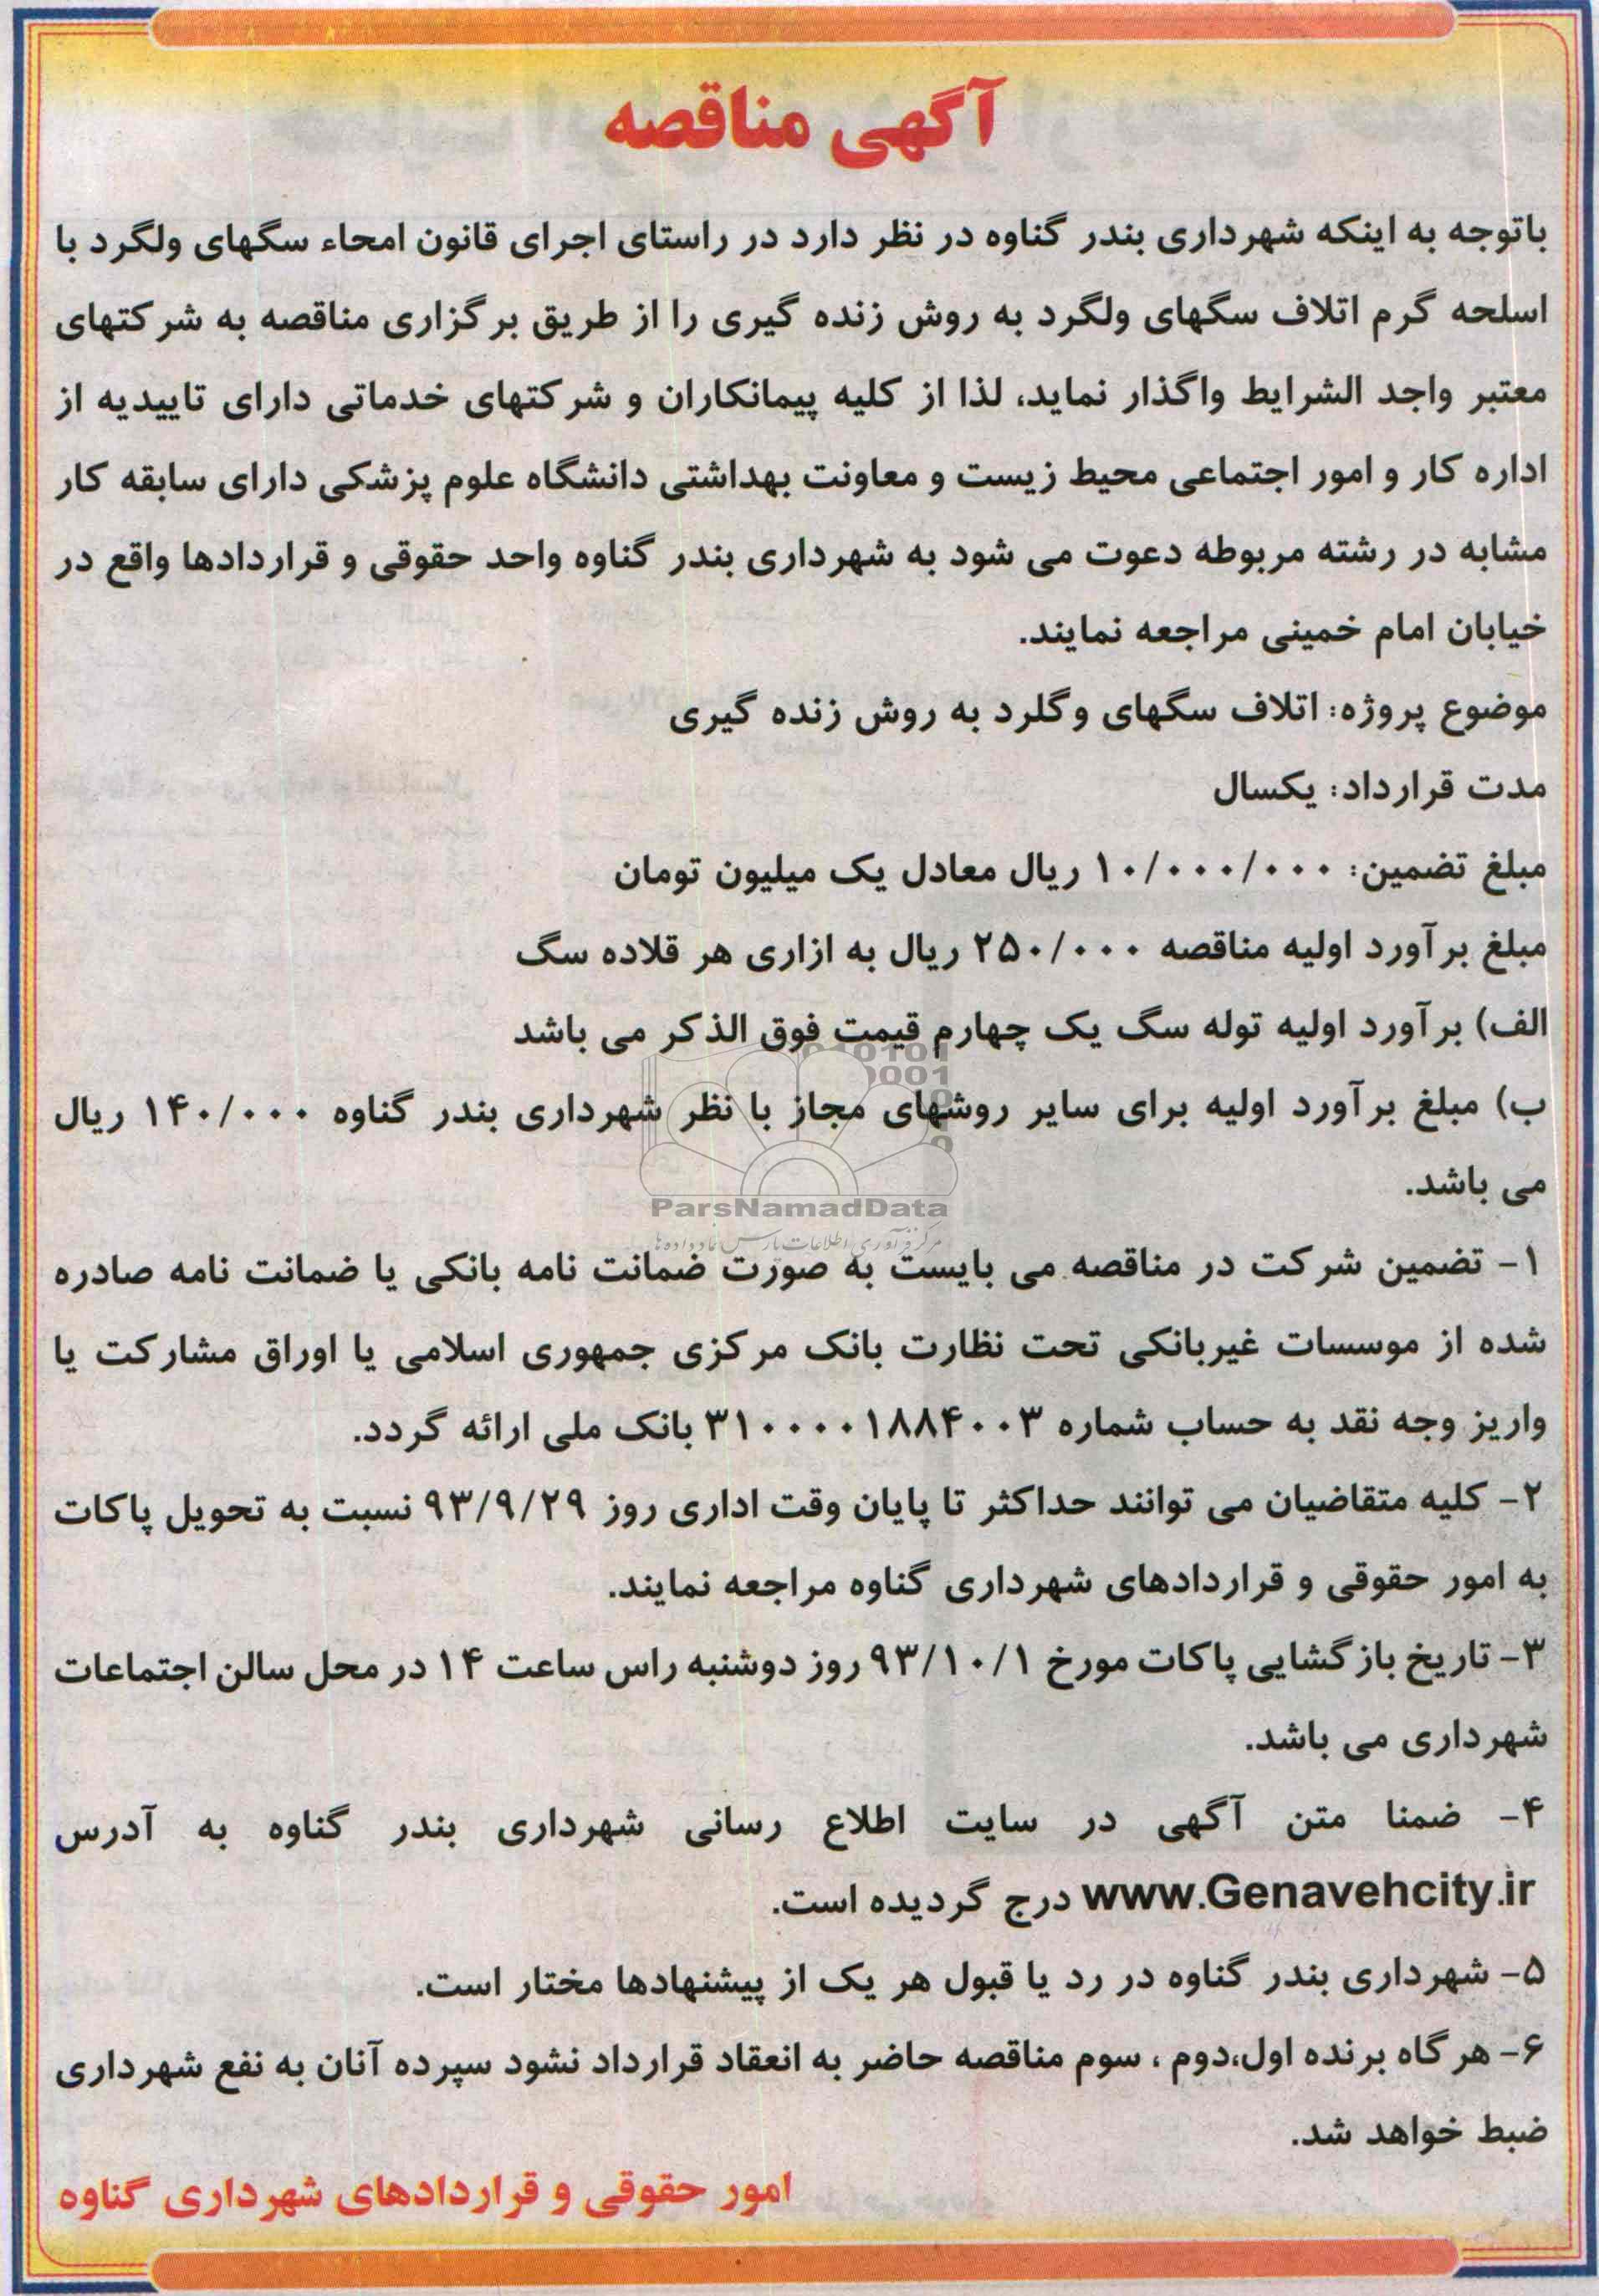 آگهی مناقصه
باتوجه به اینکه شهرداری بندر گناوه در نظر دارد در راستای اجرای قانون امحاء سگهای ولگرد با
اسلحه گرم اتلاف سگهای ولگرد به روش زنده گیری را از طریق برگزاری مناقصه به شرکتهای
معتبر واجد الشرایط واگذار نماید، لذا از کلیه پیمانکاران و شرکتهای خدماتی دارای تاییدیه از
اداره کار و امور اجتماعی محیط زیست و معاونت بهداشتی دانشگاه علوم پزشکی دارای سابقه کار
مشابه در رشته مربوطه دعوت می شود به شهرداری بندر گناوه واحد حقوقی و قراردادها واقع در
خیابان امام خمینی مراجعه نمایند.
موضوع پروژه: اتلاف سگهای وگلرد به روش زنده گیری
مدت قرارداد: یکسال
مبلغ تضمین: ۱۰/۰۰۰/۰۰۰ ریال معادل یک میلیون تومان
مبلغ برآورد اولیه مناقصه ۲۵۰/۰۰۰ ریال به ازاری هر قلاده سگ
الف) برآورد اولیه توله سگ یک چهارم قیمت فوق الذکر می باشد
ب) مبلغ برآورد اولیه برای سایر روشهای مجاز با نظر شهرداری بندر گناوه ۱۴۰/۰۰۰ ریال
می باشد.
ParsNamadData
مرکز فرآوری اطلاعات پارس نماد داده ها
۱- تضمین شرکت در مناقصه می بایست به صورت ضمانت نامه بانکی یا ضمانت نامه صادره
شده از موسسات غیربانکی تحت نظارت بانک مرکزی جمهوری اسلامی یا اوراق مشارکت یا
واریز وجه نقد به حساب شماره ۳۱۰۰۰۰۱۸۸۴۰۰۳ بانک ملی ارائه گردد.
۲- کلیه متقاضیان می توانند حداکثر تا پایان وقت اداری روز ۹۳/۹/۲۹ نسبت به تحویل پاکات
به امور حقوقی و قراردادهای شهرداری گناوه مراجعه نمایند.
۳- تاریخ بازگشایی پاکات مورخ ۹۳/۱۰/۱ روز دوشنبه راس ساعت ۱۴ در محل سالن اجتماعات
شهرداری می باشد.
۴- ضمنا متن آگهی در سایت اطلاع رسانی شهرداری بندر گناوه به آدرس
www.Genavehcity.ir درج گردیده است.
۵- شهرداری بندر گناوه در رد یا قبول هر یک از پیشنهادها مختار است.
۶- هرگاه برنده اول،دوم ، سوم مناقصه حاضر به انعقاد قرارداد نشود سپرده آنان به نفع شهرداری
ضبط خواهد شد.
امور حقوقی و قراردادهای شهرداری گناوه